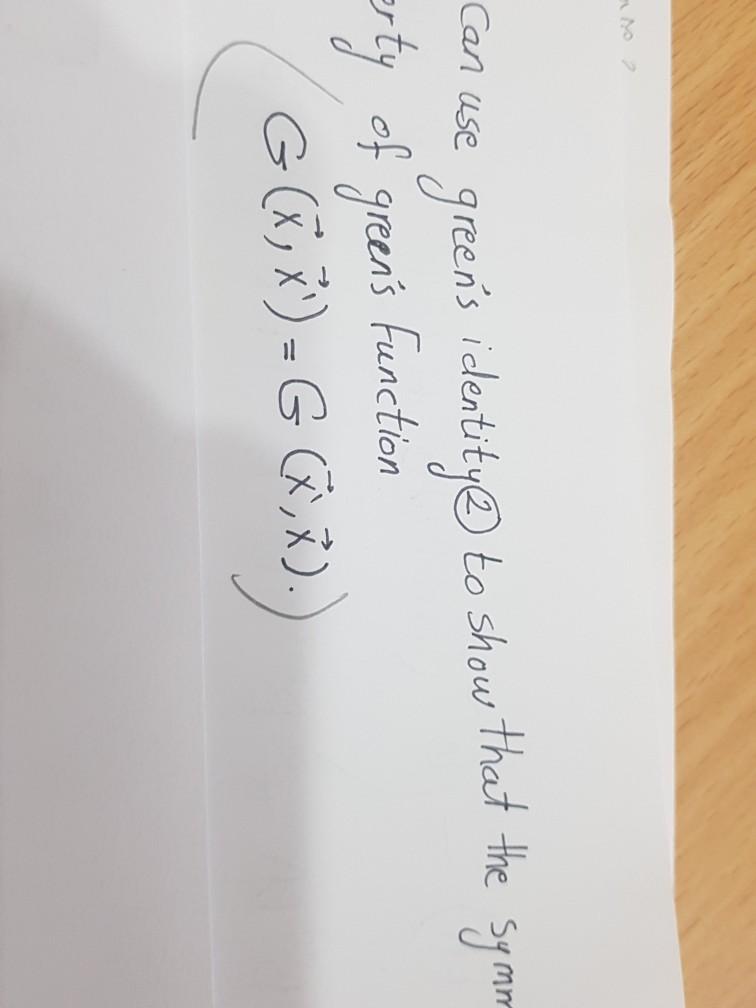 Can use green's identity② to show that the symm
erty of green's function
(G(x⃗, x⃗') = G(x⃗', x⃗).)